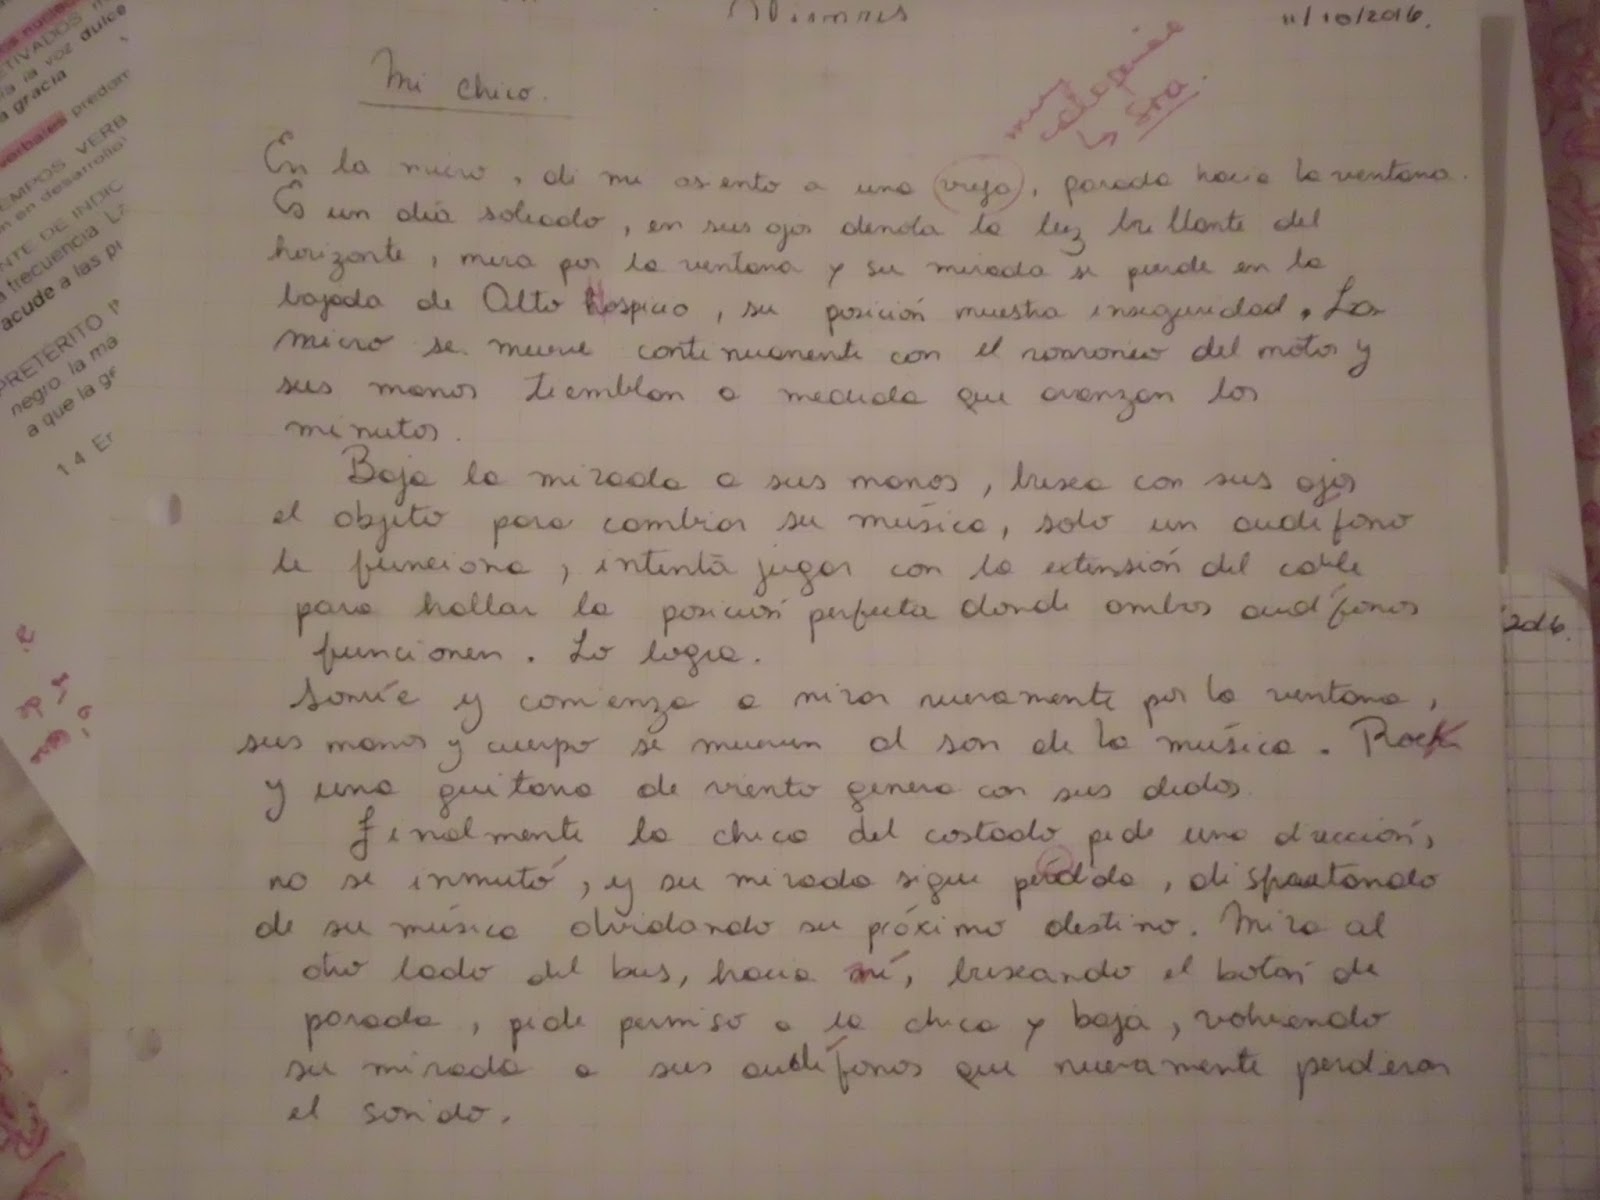 Viernes
11/10/2016.
Mi chico.
muy
↳ sra.
En la micro, di mi asiento a una vieja, parada hacia la ventana.
Es un día soleado, en sus ojos denota la luz brillante del
horizonte, mira por la ventana y su mirada se pierde en la
bajada de Alto Hospicio, su posición muestra inseguridad. La
micro se mueve continuamente con el ronroneo del motor y
sus manos tiemblan a medida que avanzan los
minutos.
Baja la mirada a sus manos, busca con sus ojos
el objeto para cambiar su música, solo un audífono
le funciona, intenta jugar con la extensión del cable
para hallar la posición perfecta donde ambos audífonos
funcionen. Lo logra.
Sonríe y comienza a mirar nuevamente por la ventana,
sus manos y cuerpo se mueven al son de la música. Rock
y una guitarra de viento genera con sus dedos.
Finalmente la chica del costado pide una dirección,
no se inmutó, y su mirada sigue perdida, disfrutando
de su música olvidando su próximo destino. Mira al
otro lado del bus, hacia mí, buscando el botón de
parada, pide permiso a la chica y baja, volviendo
su mirada a sus audífonos que nuevamente perdieron
el sonido.
ETIVADOS
la voz dulce
a gracia
verbales predom
EMPOS VERB
en desarrollo
NTE DE INDIC
frecuencia La
acude a las p
PRETERITO
negro la ma
a que la ge
14 Er
2016.